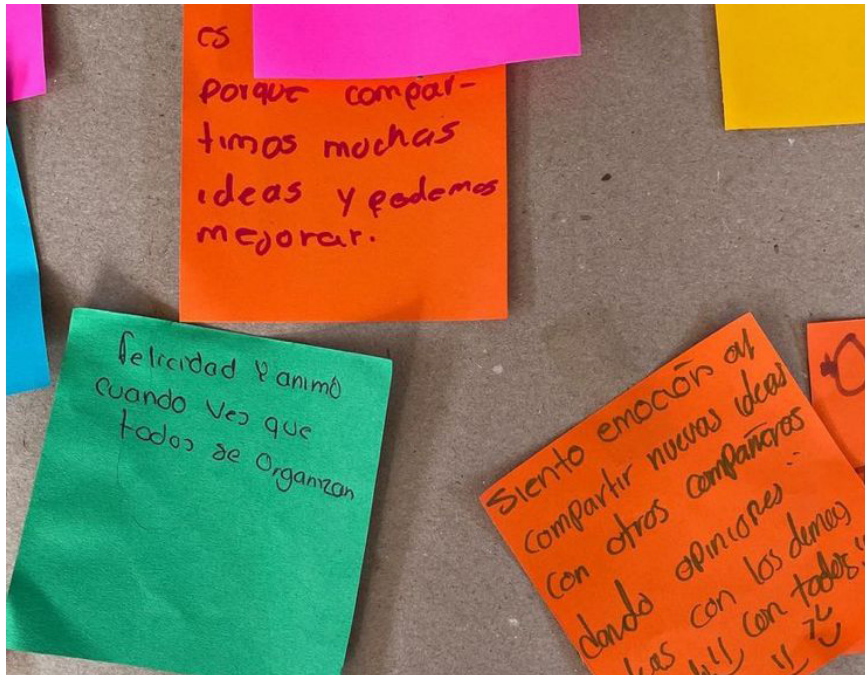 es
porque compar-
timos muchas
ideas y podemos
mejorar.
felicidad y animo
cuando ves que
todos se organizan
Siento emoción al
compartir nuevas ideas
con otros compañeros
dando opiniones
con los demas
con todos